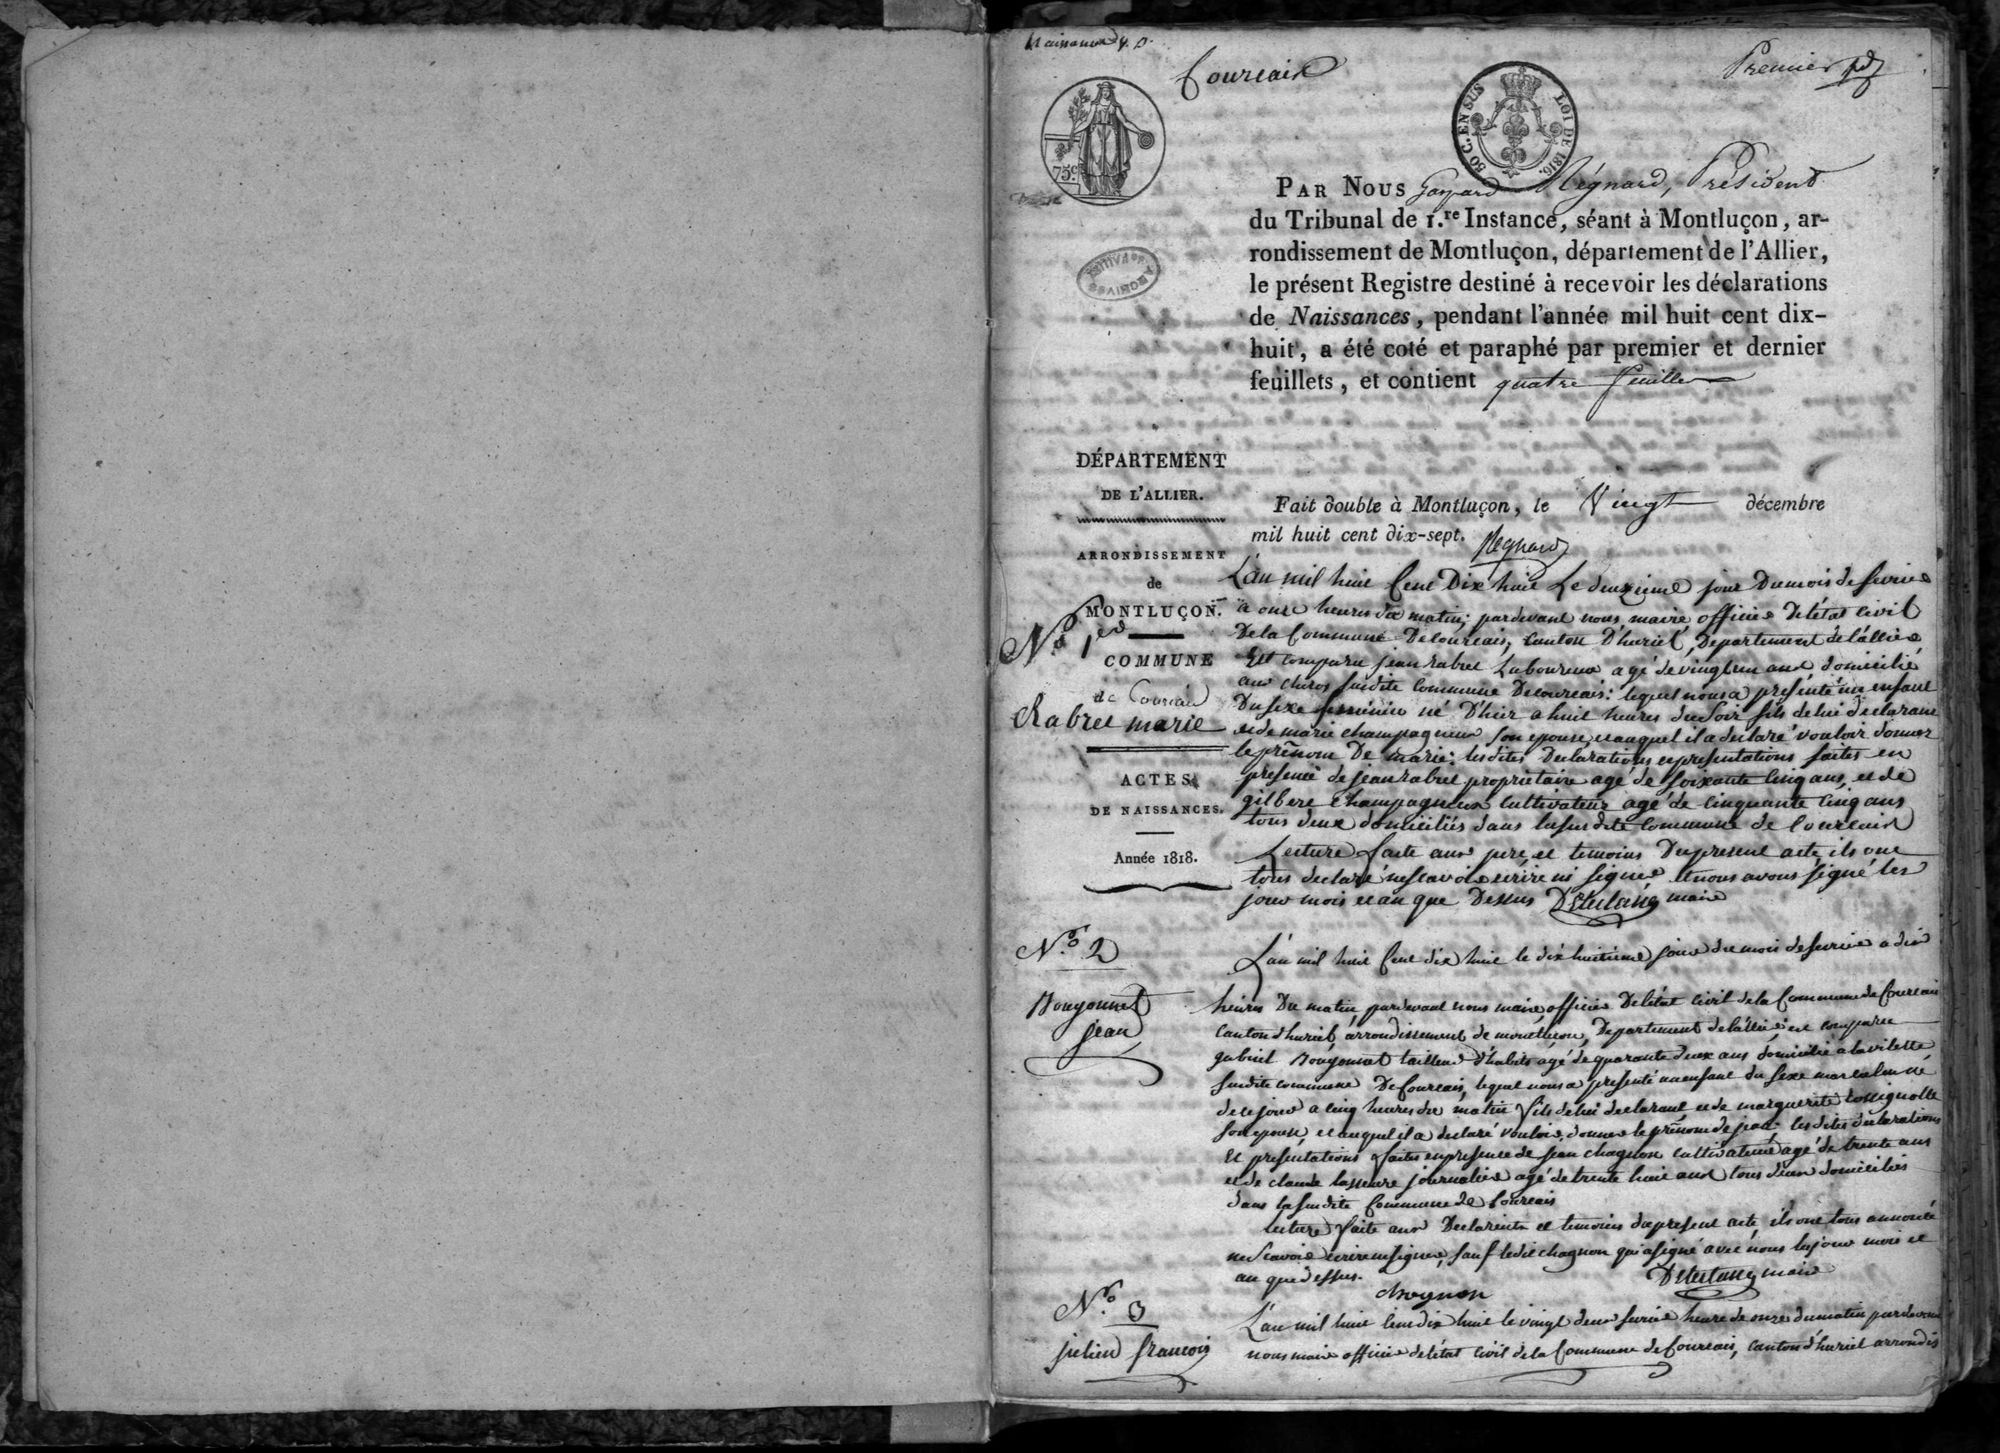 Naissance
Courçais
Premier
75c
80 C. EN SUS
LOI DE 1816.
ARCHIVES
PAR NOUS Gaspard Régnard, Président
du Tribunal de 1.re Instance, séant à Montluçon, ar-
rondissement de Montluçon, département de l'Allier,
le présent Registre destiné à recevoir les déclarations
de Naissances, pendant l'année mil huit cent dix-
huit, a été coté et paraphé par premier et dernier
feuillets, et contient quatre feuillets
DÉPARTEMENT
DE L'ALLIER.
ARRONDISSEMENT
de
MONTLUÇON.
COMMUNE
de Courçais
ACTES
DE NAISSANCES.
Année 1818.
Fait double à Montluçon, le Vingt décembre
mil huit cent dix-sept. Regnard
No. 1er
Rabret marie
L'an mil huit Cent Dix huit Le deuxieme jour Dumois de fevrier
a onze heures du matin, pardevant nous maire officier Deletat Civil
De la Commune De courcais, Canton D'huriel, Departement de l'allier
Est comparu jean rabret Laboureur agé de vingt un ans domicilié
aux susdite Commune De courcais: lequel nous a présenté un enfant
Du sexe feminin né D'hier a huit heures du Soir fils de lui Declarant
et de marie champagneux son epouse, et auquel il a declaré vouloir donner
le prénom De marie: les dites Declarations et presentations faites en
presence de jean rabret proprietaire agé de soixante Cinq ans, et de
gilbert champagneux cultivateur agé de cinquante Cinq ans
tous deux domiciliés dans la susdite Commune de Courcais
Lecture faite aux pere, et temoins Du present acte, ils ont
tous declaré ne scavoir ecrire ni signer et nous avons signé les
jour mois et an que Dessus maire
No. 2
Bougonnet
jean
L'an mil huit Cent dix huit le dix huitieme jour du mois de fevrier a dix
heures Du matin, pardevant nous maire officier De letat Civil de la Commune de Courcais
Canton d'huriel, arrondissement de montlucon, Departement de l'allier est comparu
gabriel Bougonnet tailleur d'habits agé de quarante deux ans domicilié a lavilette
susdite commune De Courcais, lequel nous a presenté un enfant du sexe masculin né
de ce jour a cinq heures du matin fils de lui declarant et de marguerite rossignolle
son epouse et auquel il a declaré vouloir donner le prénom de jean: les dites declarations
Et présentations faites en presence de jean chagnon cultivateur agé de trente ans
et de claude journalier agé de trente huit ans tous deux domiciliés
dans la susdite Commune de Courcais
lecture faite aux Declarants et temoins du present acte, ils ont tous
ne scavoir ecrire ni signer, sauf ledit chagnon qui a signé avec nous les jour mois et
an que dessus.
chagnon maire
No. 3
julien francois
L'an mil huit Cent dix huit le vingt deux fevrier heure de onze du matin pardevant
nous maire officier de létat Civil de la Commune de Courcais, Canton d'huriel arrondis